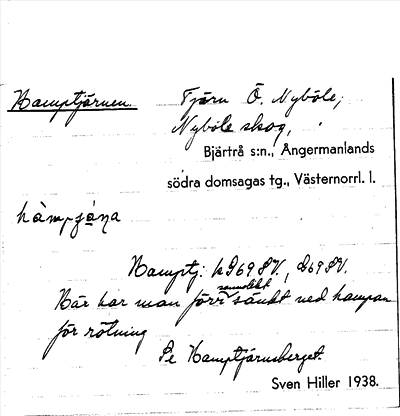 Hamptjärnen. Tjärn Ö. Nyböle,
Nyböle skog,
Bjärtrå s:n., Ångermanlands
södra domsagas tg., Västernorrl. l.
hàmpʒà̱ɳa
Hamptj: kG69SV., G69SV.
Här har man förr sannolikt sänkt ned hampan
för rötning
Se Hamptjärnsberget.
Sven Hiller 1938.